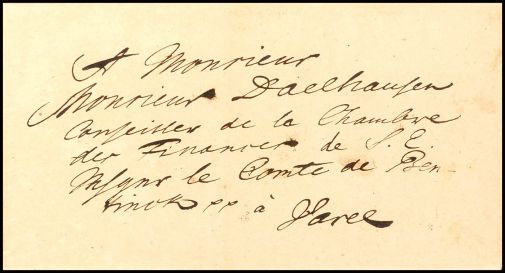 A Monsieur
Monsieur Daelhausen
Conseiller de la Chambre
des Finances de S. E.
Msgnr le Comte de Ben-
tinck pp à Varel